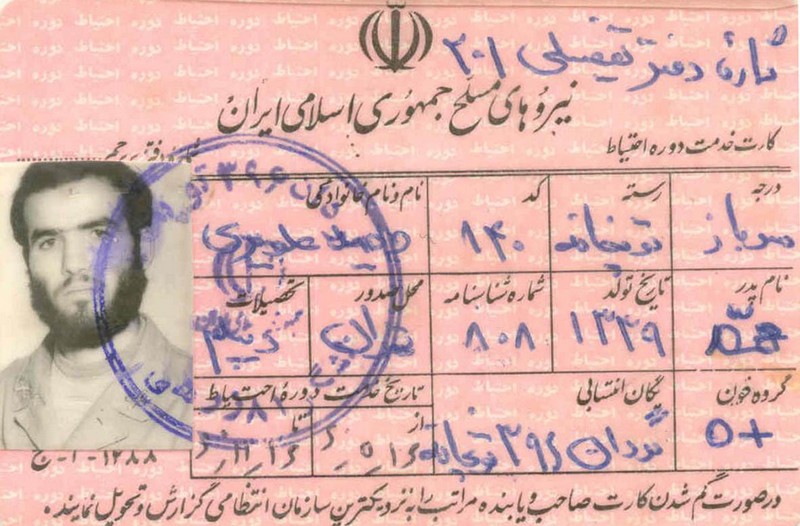 شمارهٔ دفتر تفصیلی ۳۰۱
نیروهای مسلح جمهوری اسلامی ایران
کارت خدمت دوره احتیاط
درجه
رسته
کد
نام و نام خانوادگی
سرباز
توپخانه
۱۴۰
نام پدر
تاریخ تولد
شماره شناسنامه
محل صدور
تحصیلات
محمد
۱۳۳۹
۸۰۸
تهران
دیپلم
گروه خون
یگان انتسابی
تاریخ خدمت دوره احتیاط
از
تا
O+
گردان ۳۹۶ توپخانه
۱۲۸۸-۱-ج
درصورت گم شدن کارت صاحب و یابنده مراتب را به نزدیکترین سازمان انتظامی گزارش و تحویل نمایند.